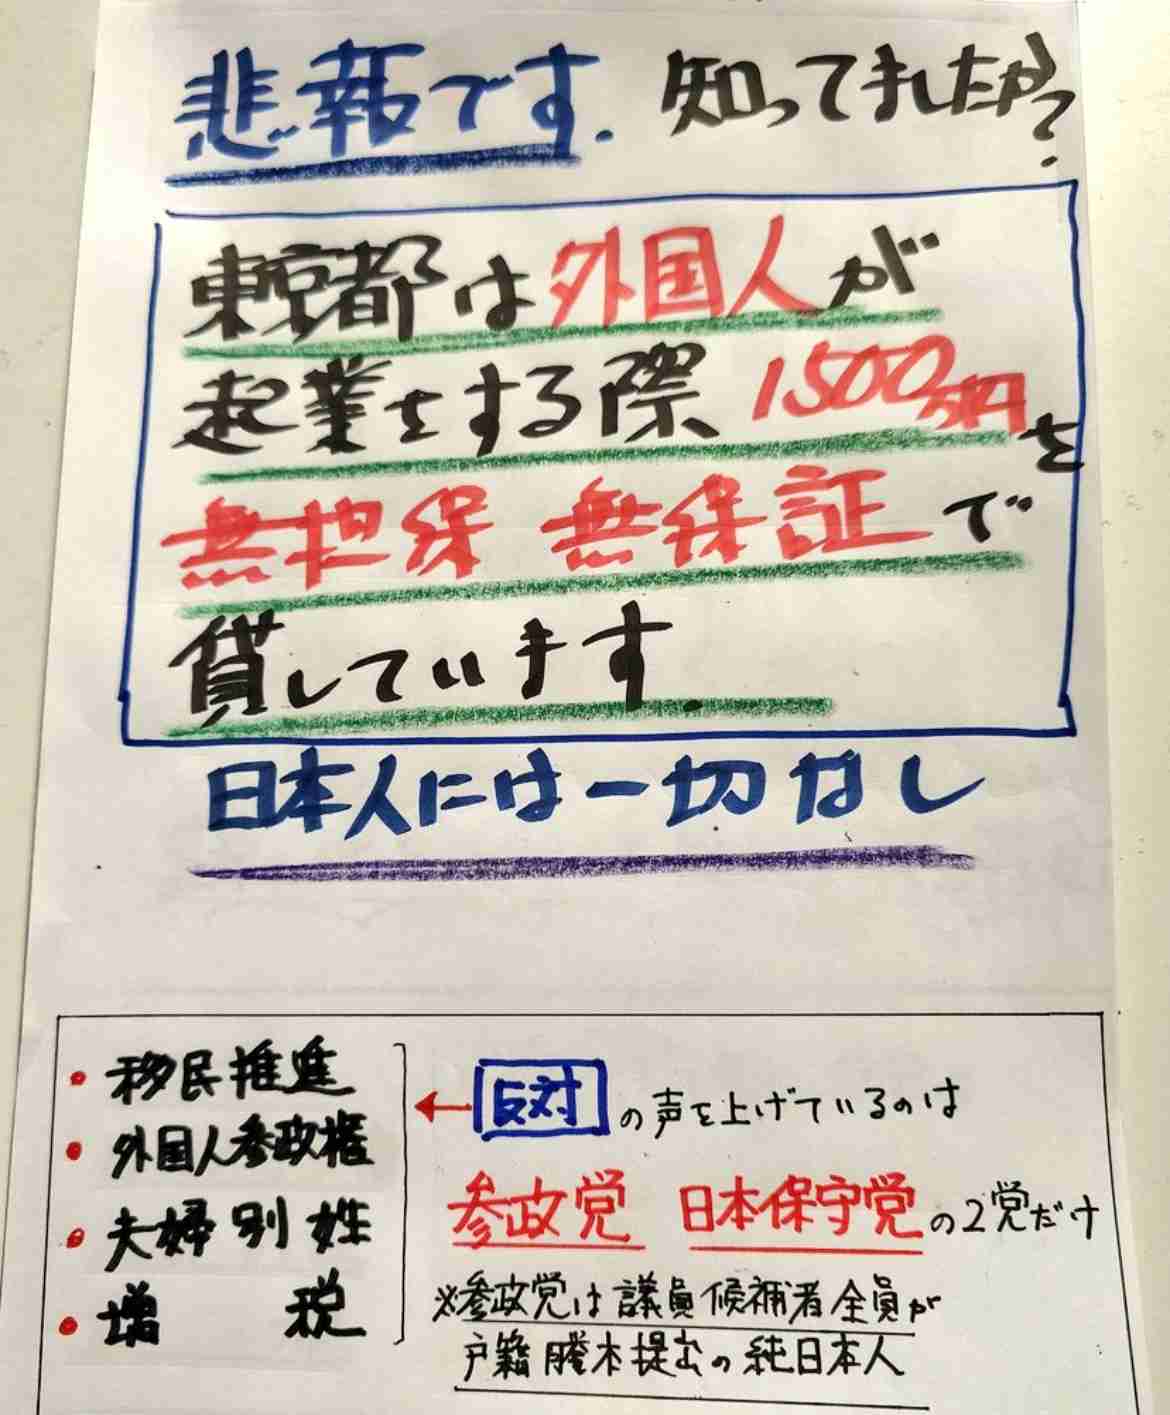 悲報です. 知ってましたか?
東京都は外国人が
起業をする際 1500万円を
無担保 無保証で
貸しています.
日本人には一切なし
• 移民推進
• 外国人参政権
• 夫婦別姓
• 増 税
← 反対の声を上げているのは
参政党 日本保守党の2党だけ
※参政党は議員候補者全員が
戸籍謄本提出の純日本人